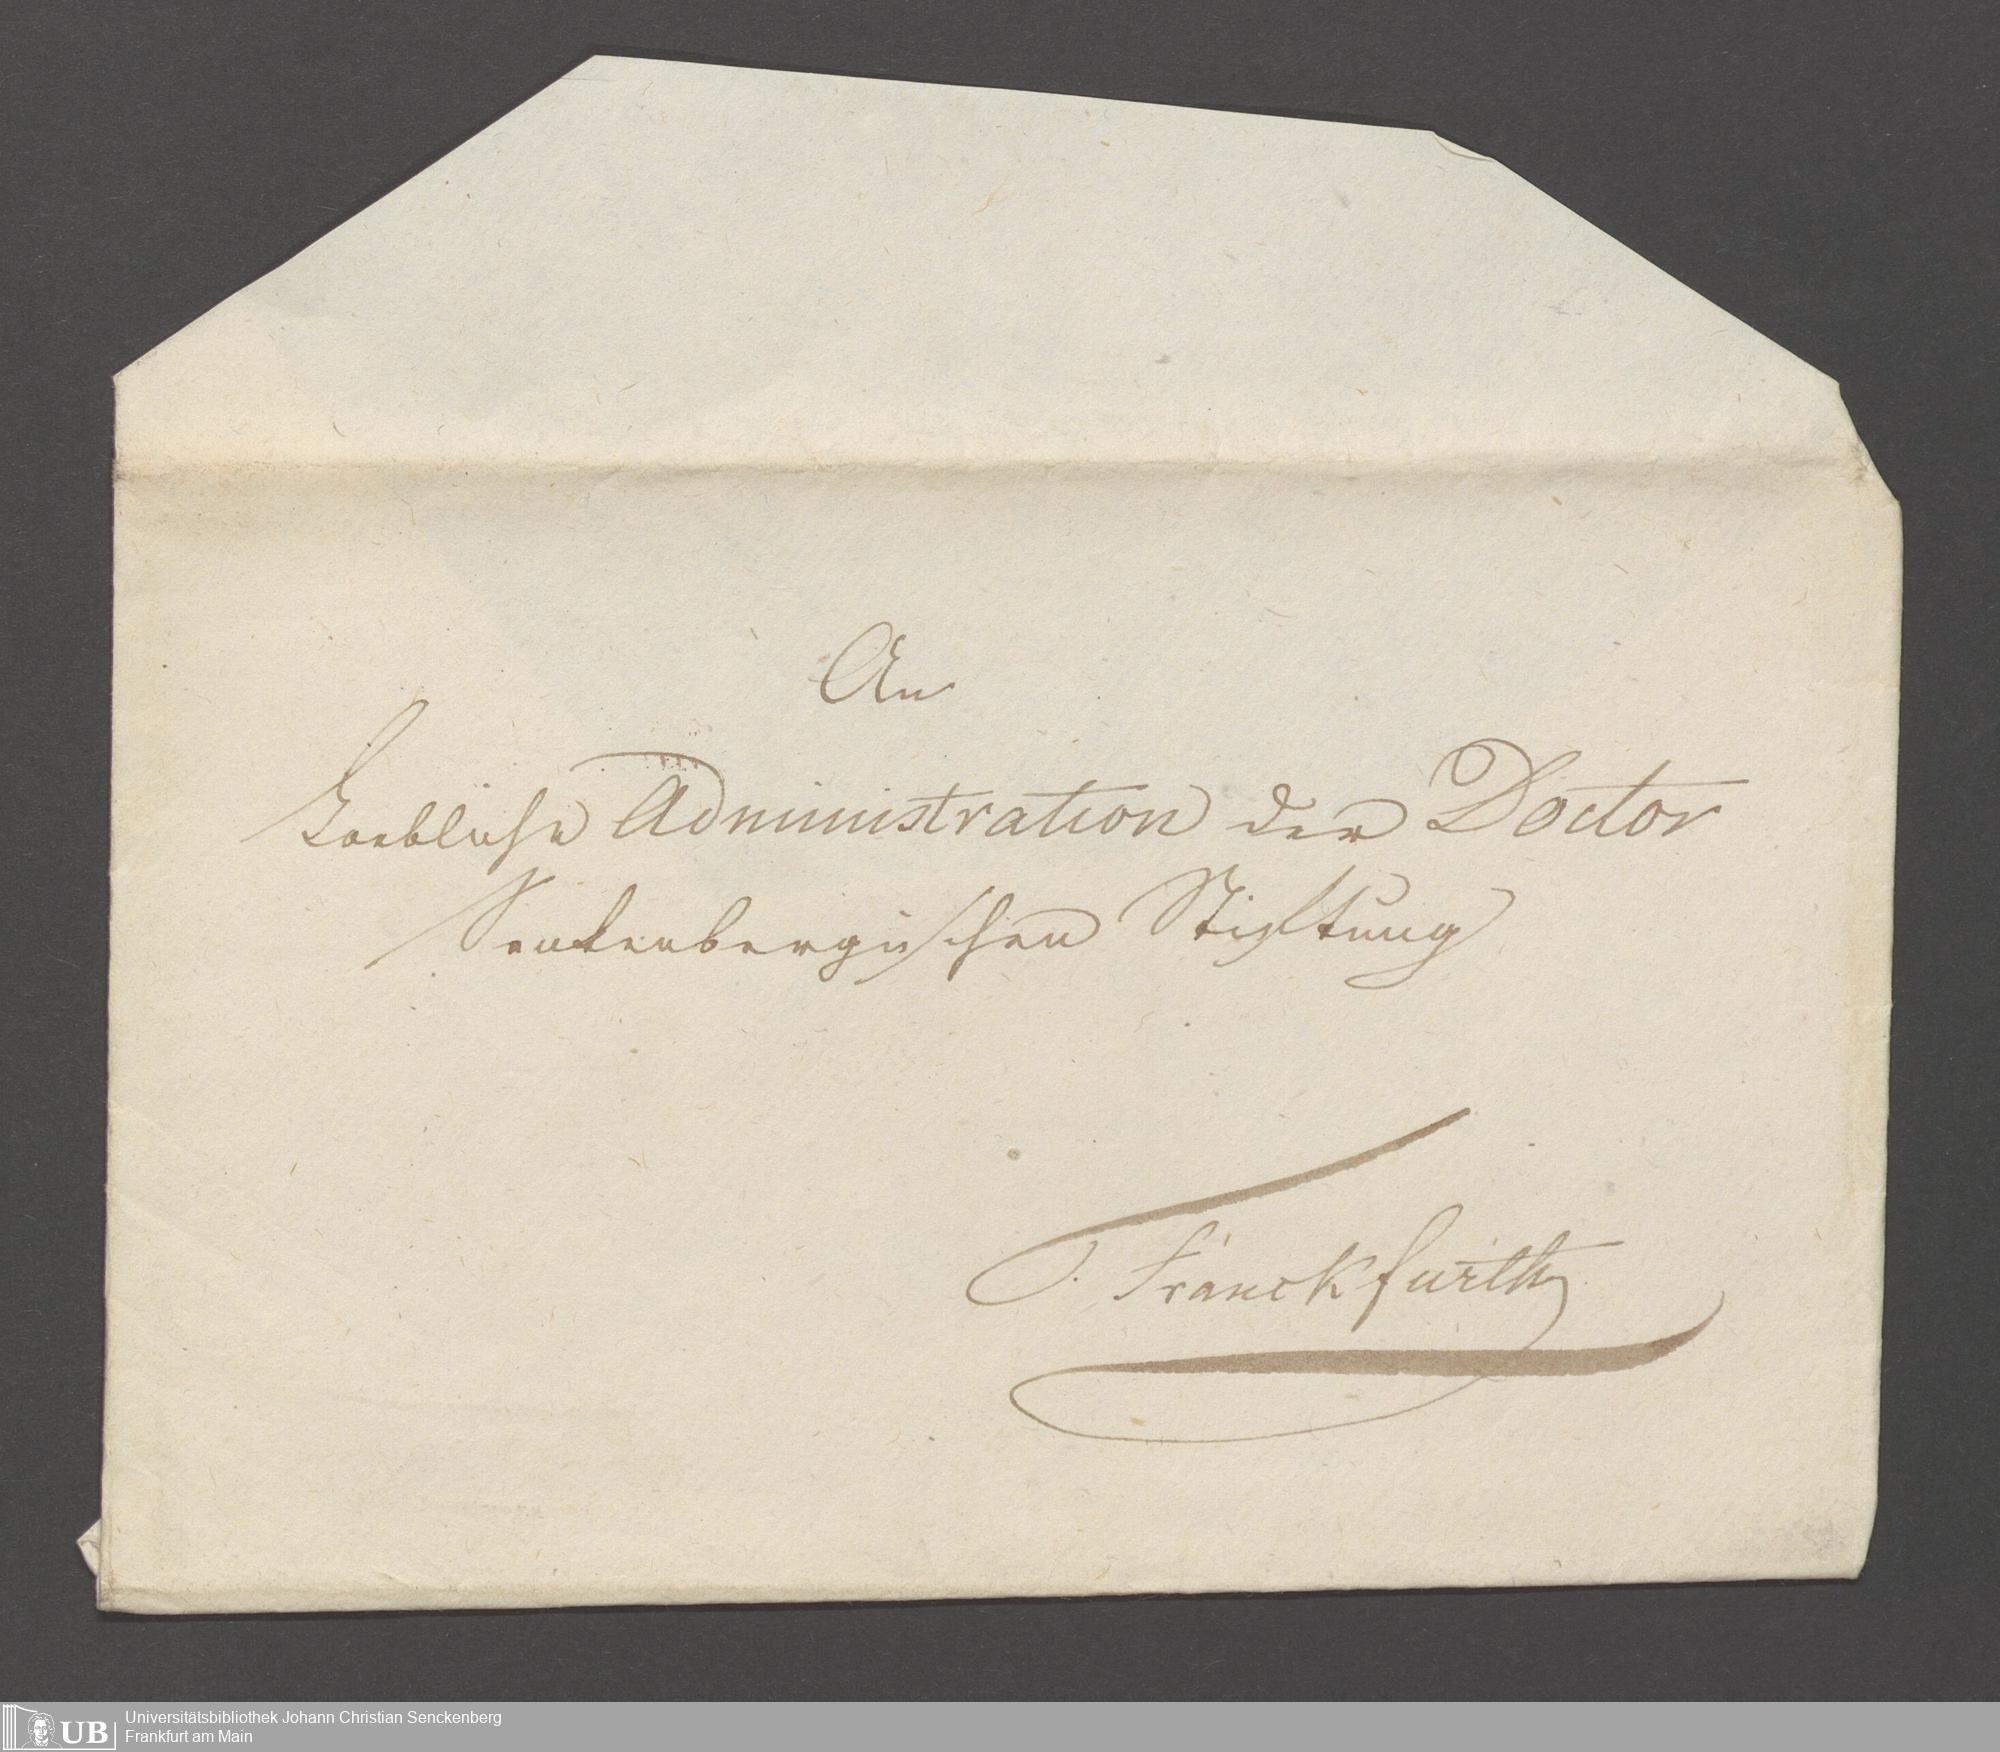 An
Loebliche Administration der Doctor
Senkenbergischen Stiftung
Franckfurth
UB
Universitätsbibliothek Johann Christian Senckenberg
Frankfurt am Main